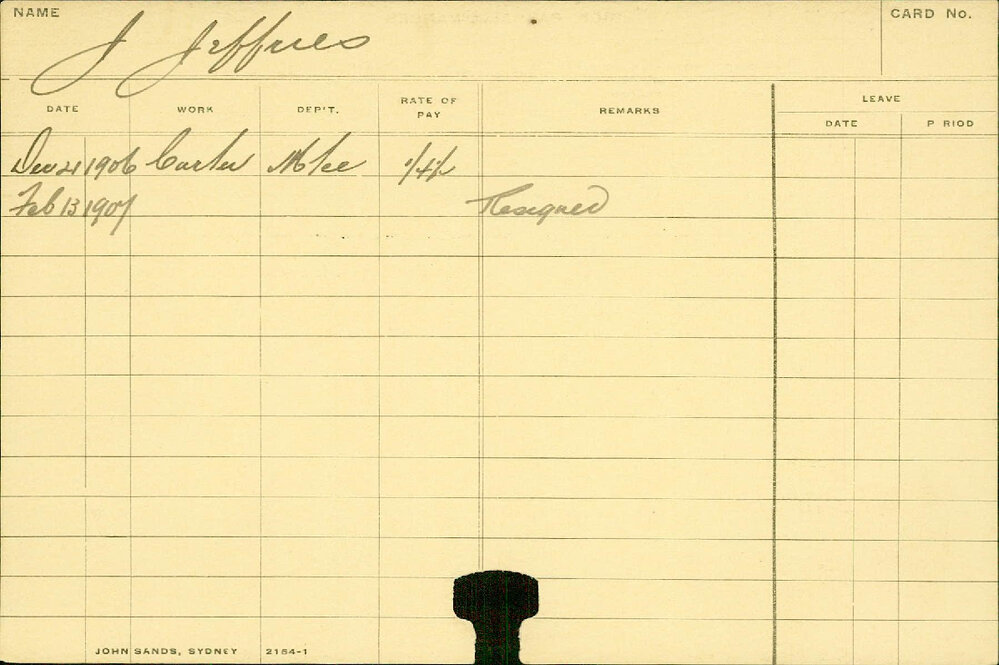 NAME
CARD No.
J Jeffries
LEAVE
DATE WORK DEP'T. RATE OF PAY REMARKS
DATE P RIOD
Dec 21 1906 Carter
Feb 13 1907 Resigned
JOHN SANDS, SYDNEY 2164-1